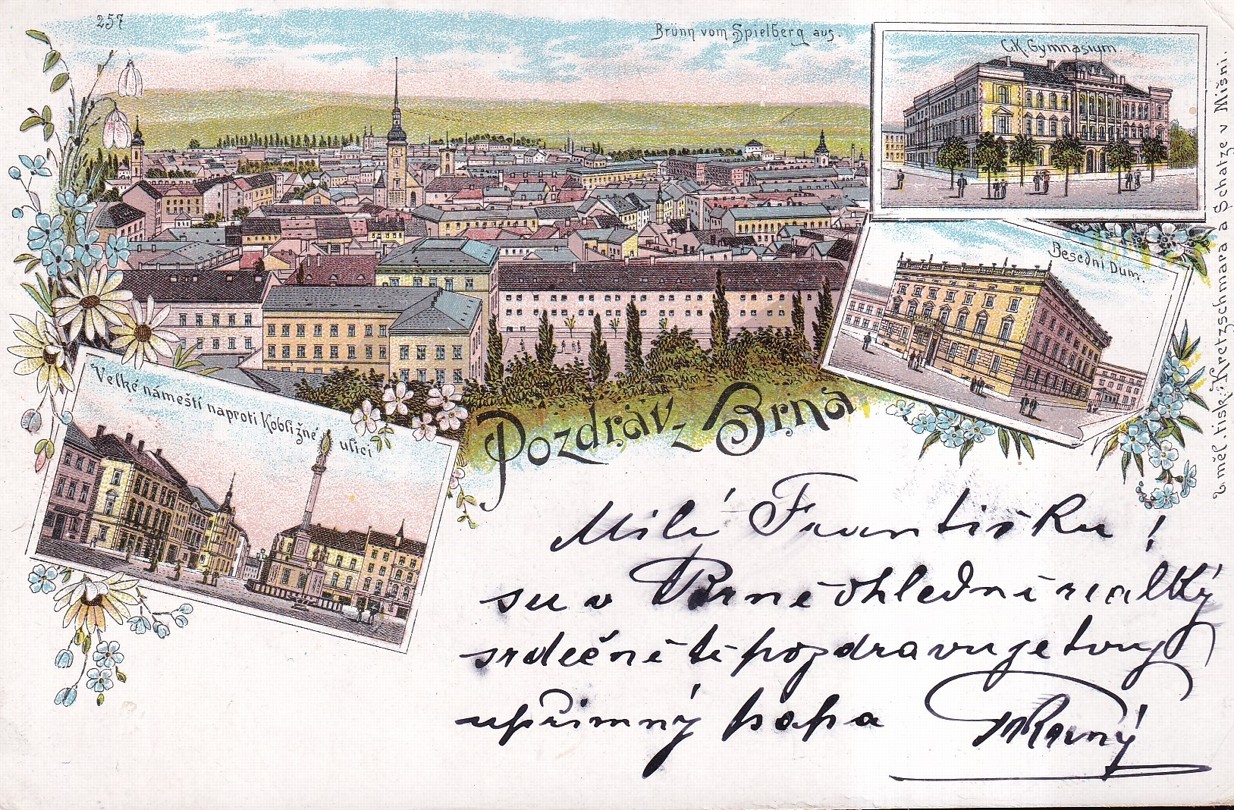 257
Brünn vom Spielberg aus.
C.K. Gymnasium.
Besední Dum.
Velké náměstí naproti Kobližné ulici
Pozdrav z Brna
Uměl. tisk.: Kretzschmara a Schatze v Míšni.
Milí Františku!
su v Brně ohledně realký
srdečně tě pozdravuje tvuj
upřimný papa